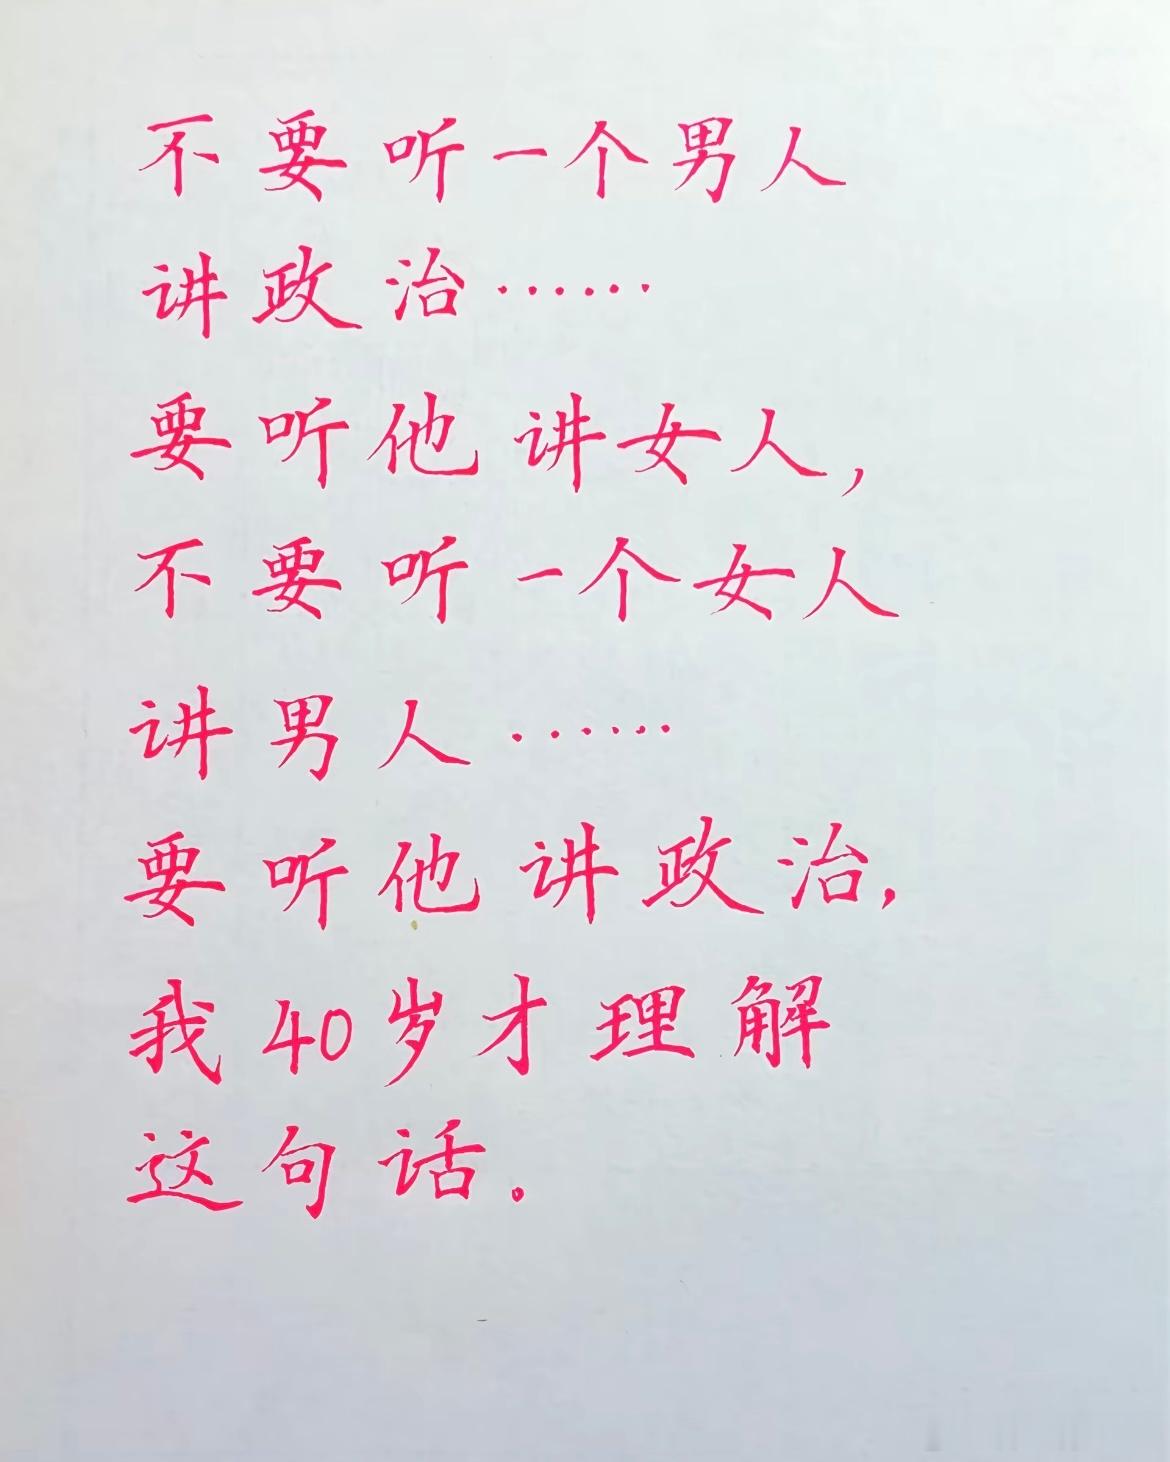 不要听一个男人
讲政治……
要听他讲女人，
不要听一个女人
讲男人……
要听他讲政治，
我40岁才理解
这句话。